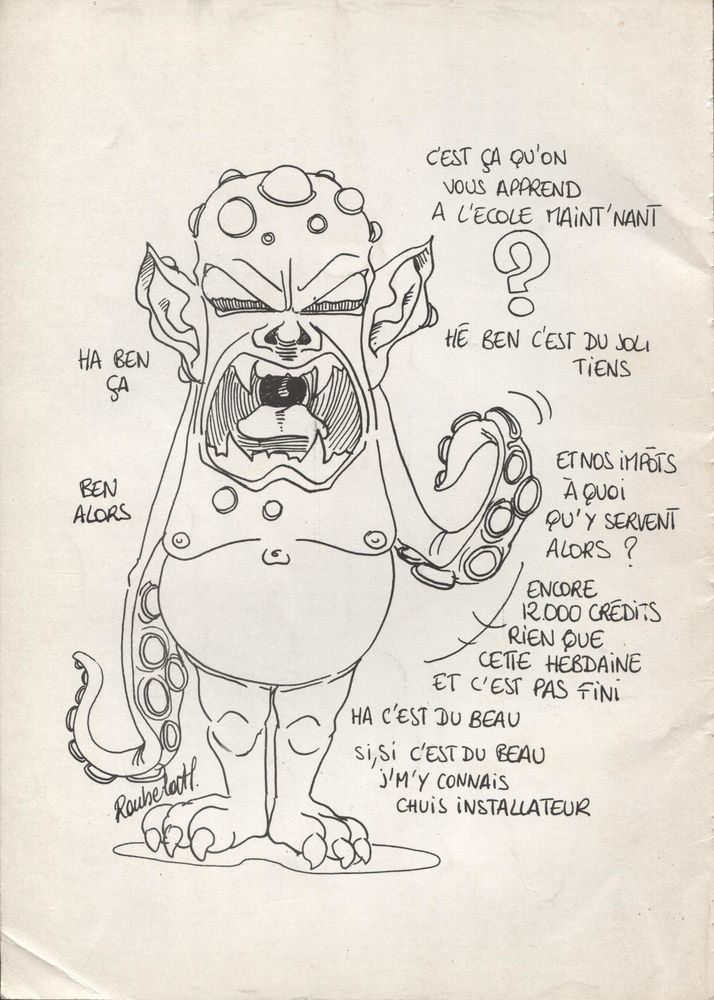 C'EST ÇA QU'ON
VOUS APPREND
A L'ECOLE MAINT'NANT
?
HÉ BEN C'EST DU JOLI
TIENS
HA BEN
ÇA
BEN
ALORS
ET NOS IMPÔTS
À QUOI
QU'Y SERVENT
ALORS ?
ENCORE
12.000 CRÉDITS
RIEN QUE
CETTE HEBDAINE
ET C'EST PAS FINI
HA C'EST DU BEAU
SI, SI C'EST DU BEAU
J'M'Y CONNAIS
CHUIS INSTALLATEUR